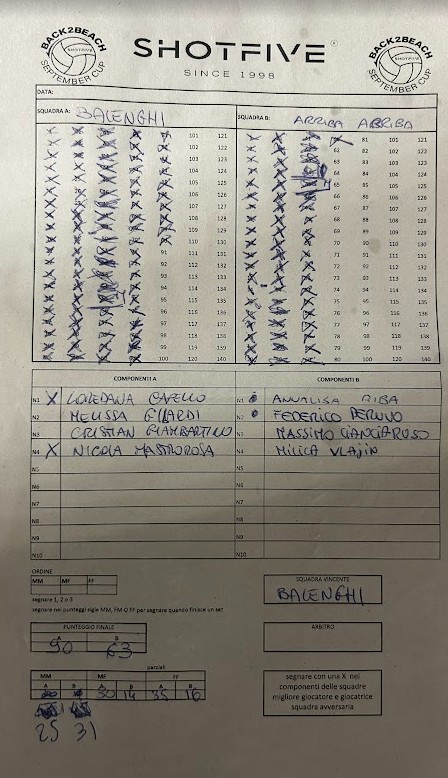 BACK2BEACH SHOTFIVE SEPTEMBER CUP
SHOTFIVE
SINCE 1998
BACK2BEACH SHOTFIVE SEPTEMBER CUP
DATA:
SQUADRA A: BALENGHI SQUADRA B: ARRIBA ARRIBA
101 121 81 101 121
102 122 62 82 102 122
103 123 63 83 103 123
104 124 64 84 104 124
105 125 65 85 105 125
106 126 66 86 106 126
107 127 67 87 107 127
108 128 68 88 108 128
109 129 69 89 109 129
110 130 70 90 110 130
91 111 131 71 91 111 131
92 112 132 72 92 112 132
93 113 133 73 93 113 133
94 114 134 74 94 114 134
95 115 135 75 95 115 135
96 116 136 76 96 116 136
97 117 137 77 97 117 137
98 118 138 78 98 118 138
99 119 139 79 99 119 139
100 120 140 80 100 120 140
COMPONENTI A COMPONENTI B
N1 X LOREDANA N1 ANNALISA RIBA
N2 MELISSA N2 FEDERICO PERUNO
N3 CRISTIAN GIAMBARTINO N3 MASSIMO CIANCIARUSO
N4 X NICOLA MASTROROSA N4 MILICA VLAJIN
N5 N5
N6 N6
N7 N7
N8 N8
N9 N9
N10 N10
ORDINE
MM MF FF
segnare 1, 2 o 3
segnare nei punteggi sigle MM, FM O FF per segnare quando finisce un set
SQUADRA VINCENTE
BALENGHI
PUNTEGGIO FINALE
A B
90 63
ARBITRO
parziali
MM MF FF
A B A B A B
30 14 35 16
25 31
segnare con una X nei
componenti delle squadre
migliore giocatore e giocatrice
squadra avversaria